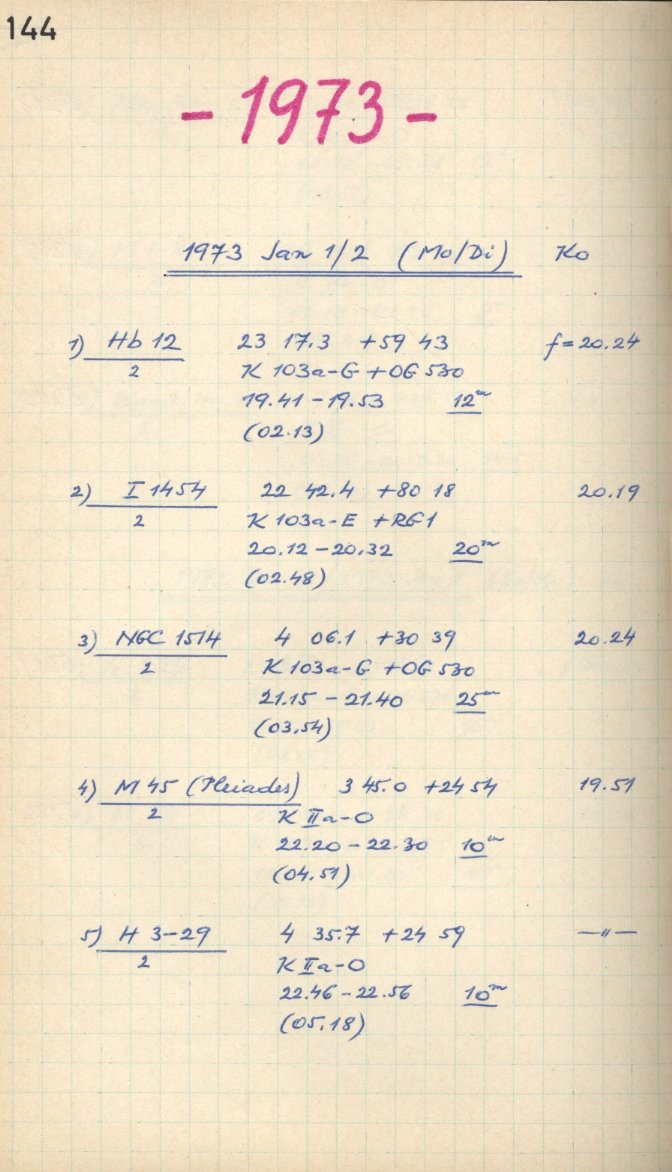 144
- 1973 -
1973 Jan 1/2 (Mo/Di) Ko
1) Hb 12 23 17.3 +59 43 f = 20.24
2 K 103a-G + OG 530
19.41 - 19.53 12m
(02.13)
2) I 1454 22 42.4 +80 18 20.19
2 K 103a-E + RG1
20.12 - 20.32 20m
(02.48)
3) NGC 1514 4 06.1 +30 39 20.24
2 K 103a-G + OG 530
21.15 - 21.40 25m
(03.54)
4) M 45 (Pleiades) 3 45.0 +24 54 19.51
2 K IIa-O
22.20 - 22.30 10m
(04.51)
5) H 3-29 4 35.7 +24 59 —〃—
2 K IIa-O
22.46 - 22.56 10m
(05.18)